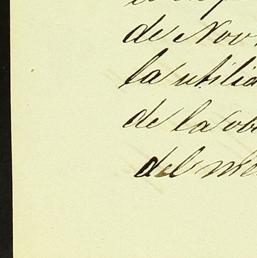 de Nov
la utilid
de la ob
del mis